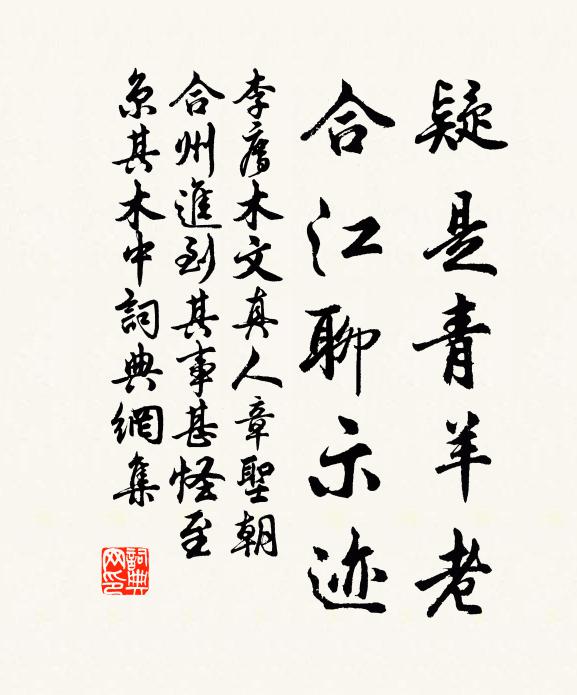 疑是青羊老
合江聊示迹
李廌木文真人章聖朝
合州進到其事甚怪至
京其木中詞典網集
詞典网印